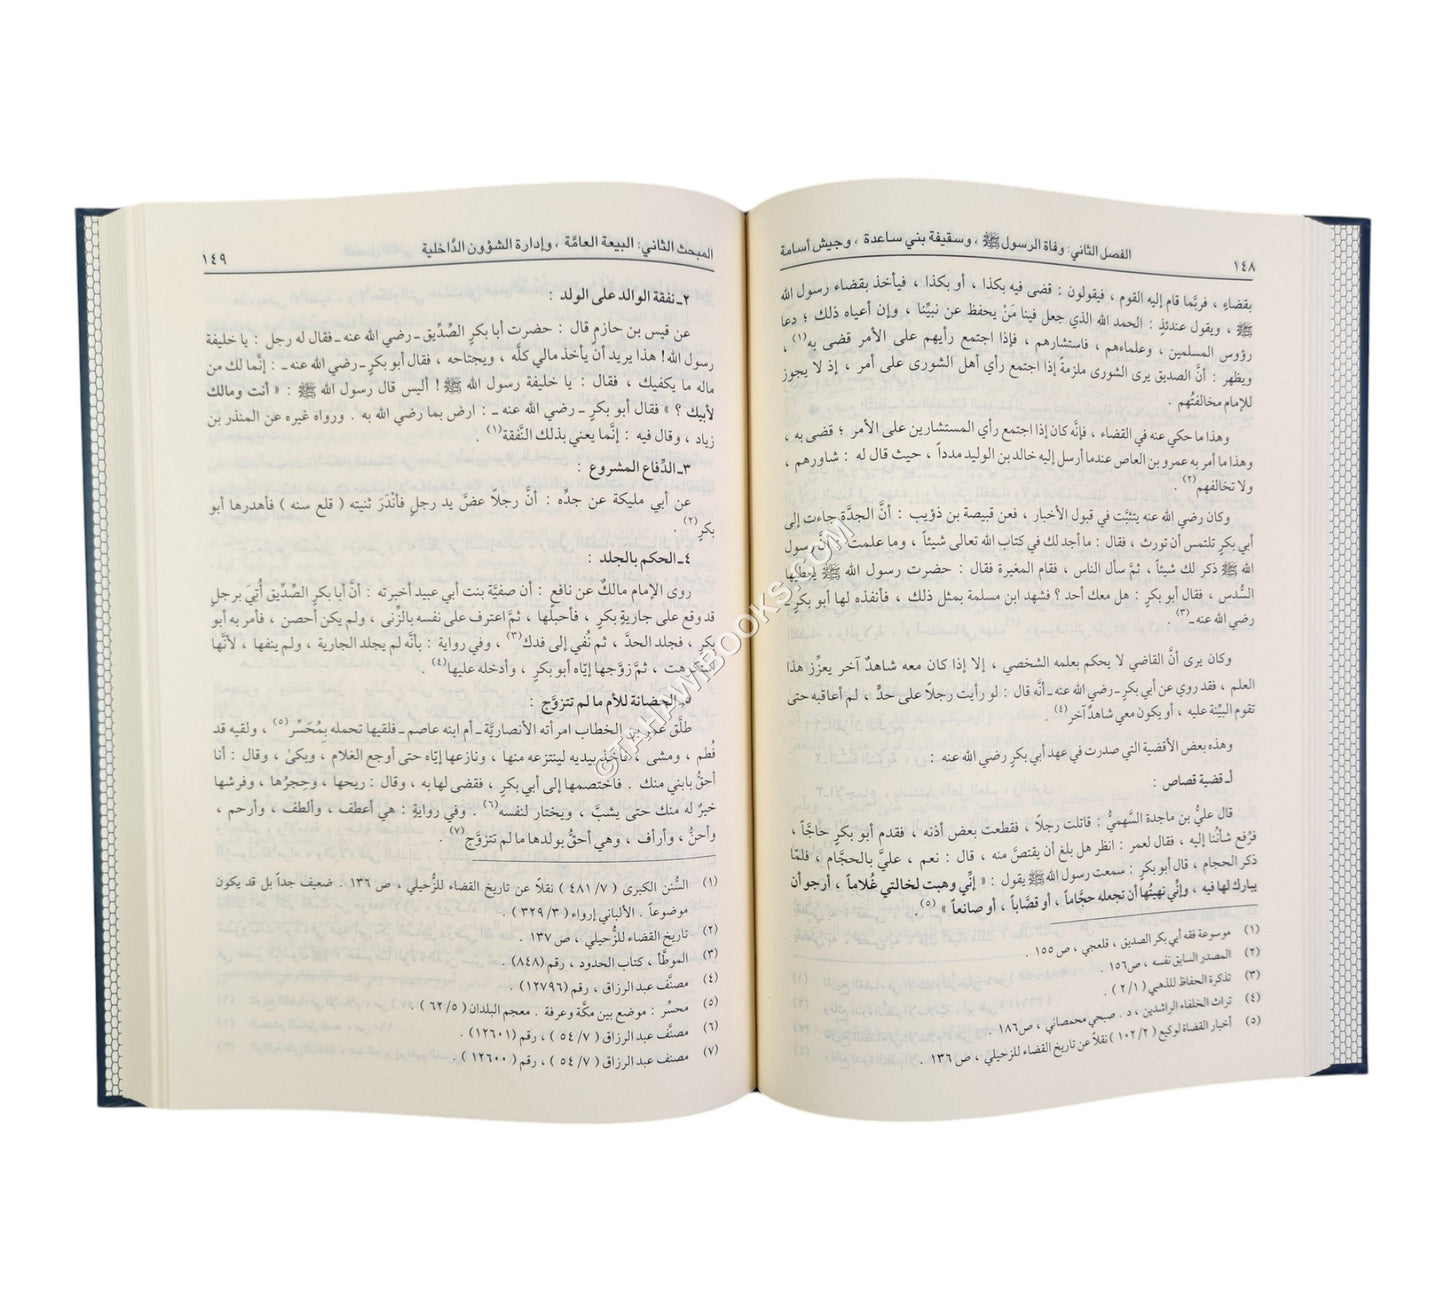 ١٤٨
الفصل الثاني: وفاة الرسول ﷺ ، وسقيفة بني ساعدة ، وجيش أسامة
بقضاءٍ ، فربَّما قام إليه القوم ، فيقولون : قضى فيه بكذا ، أو بكذا ، فيأخذ بقضاء رسول الله
ﷺ ، ويقول عندئذٍ : الحمد لله الذي جعل فينا مَنْ يحفظ عن نبيِّنا ، وإن أعياه ذلك ؛ دعا
رؤوس المسلمين ، وعلماءهم ، فاستشارهم ، فإذا اجتمع رأيهم على الأمر قضى به(١) ،
ويظهر : أنَّ الصديق يرى الشورى ملزمةً إذا اجتمع رأي أهل الشورى على أمر ، إذ لا يجوز
للإمام مخالفتُهم .
وهذا ما حكي عنه في القضاء ، فإنَّه كان إذا اجتمع رأي المستشارين على الأمر ؛ قضى به ،
وهذا ما أمر به عمرو بن العاص عندما أرسل إليه خالد بن الوليد مدداً ، حيث قال له : شاورهم ،
ولا تخالفهم(٢) .
وكان رضي الله عنه يتثبَّت في قبول الأخبار ، فعن قبيصة بن ذؤيب : أنَّ الجدَّة جاءت إلى
أبي بكرٍ تلتمس أن تورث ، فقال : ما أجد لك في كتاب الله تعالى شيئاً ، وما علمت أنَّ رسول
الله ﷺ ذكر لك شيئاً ، ثمَّ سأل الناس ، فقام المغيرة فقال : حضرت رسول الله ﷺ يعطيها
السُّدس ، فقال أبو بكرٍ : هل معك أحد ؟ فشهد ابن مسلمة بمثل ذلك ، فأنفذه لها أبو بكرٍ ـ
رضي الله عنه ـ(٣) .
وكان يرى أنَّ القاضي لا يحكم بعلمه الشخصي ، إلا إذا كان معه شاهدٌ آخر يعزِّز هذا
العلم ، فقد روي عن أبي بكرٍ ـ رضي الله عنه ـ أنَّه قال : لو رأيت رجلاً على حدٍّ ، لم أعاقبه حتى
تقوم البيِّنة عليه ، أو يكون معي شاهدٌ آخر(٤) .
وهذه بعض الأقضية التي صدرت في عهد أبي بكرٍ رضي الله عنه :
أـ قضية قصاص :
قال عليُّ بن ماجدة السَّهميُّ : قاتلت رجلاً ، فقطعت بعض أذنه ، فقدم أبو بكرٍ حاجَّاً ،
فرُفع شأنُنا إليه ، فقال لعمر : انظر هل بلغ أن يقتصَّ منه ، قال : نعم ، عليَّ بالحجَّام ، فلمَّا
ذكر الحجام ، قال أبو بكرٍ : سمعت رسول الله ﷺ يقول : « إنِّي وهبت لخالتي غُلاماً ، أرجو أن
يبارك لها فيه ، وإنِّي نهيتُها أن تجعله حجَّاماً ، أو قصَّاباً ، أو صانعاً » (٥) .
(١) موسوعة فقه أبي بكر الصديق ، قلعجي ، ص ١٥٥ .
(٢) المصدر السابق نفسه ، ص١٥٦ .
(٣) تذكرة الحفاظ للذهبي ( ٢/١ ) .
(٤) تراث الخلفاء الراشدين ، د . صبحي محمصاني ، ص١٨٦ .
(٥) أخبار القضاة لوكيع ( ١٠٢/٢ ) نقلاً عن تاريخ القضاء للزحيلي ، ص ١٣٦ .
المبحث الثاني: البيعة العامَّة ، وإدارة الشؤون الدَّاخلية
١٤٩
٢ـ نفقة الوالد على الولد :
عن قيس بن حازم قال : حضرت أبا بكرٍ الصِّدِّيق ـ رضي الله عنه ـ فقال له رجل : يا خليفة
رسول الله! هذا يريد أن يأخذ مالي كلَّه ، ويجتاحه ، فقال أبو بكرٍ ـ رضي الله عنه ـ : إنَّما لك من
ماله ما يكفيك ، فقال : يا خليفة رسول الله ﷺ ! أليس قال رسول الله ﷺ : « أنت ومالك
لأبيك ؟ » فقال أبو بكرٍ ـ رضي الله عنه ـ : ارض بما رضي الله به . ورواه غيره عن المنذر بن
زياد ، وقال فيه : إنَّما يعني بذلك النَّفقة(١) .
٣ـ الدِّفاع المشروع :
عن أبي مليكة عن جدِّه : أنَّ رجلاً عضَّ يد رجلٍ فأنْدَرَ ثنيته ( قلع سنه ) فأهدرها أبو
بكرٍ(٢) .
٤ـ الحكم بالجلد :
روى الإمام مالكٌ عن نافع : أن صفيَّة بنت أبي عبيد أخبرته : أنَّ أبا بكرٍ الصِّدِّيق أُتِيَ برجلٍ
قد وقع على جاريةٍ بكرٍ ، فأحبلَها ، ثمَّ اعترف على نفسه بالزِّنى ، ولم يكن أحصن ، فأمر به أبو
بكر ، فجلد الحدَّ ، ثم نُفي إلى فدك(٣) ، وفي رواية : بأنَّه لم يجلد الجارية ، ولم ينفها ، لأنَّها
استكرهت ، ثمَّ زوَّجها إيَّاه أبو بكر ، وأدخله عليها(٤)
٥ـ الحضانة للأم ما لم تتزوَّج :
طلَّق عمر بن الخطاب امرأته الأنصاريَّة ـ أم ابنه عاصم ـ فلقيها تحمله بِمُحَسِّر(٥) ، ولقيه قد
فُطم ، ومشى ، فأخذ بيديه لينتزعه منها ، ونازعها إيَّاه حتى أوجع الغلام ، وبكىٰ ، وقال : أنا
أحقُّ بابني منك . فاختصمها إلى أبي بكر ، فقضى لها به ، وقال : ريحها ، وحِجرُها ، وفرشها
خيرٌ له منك حتى يشبَّ ، ويختار لنفسه(٦) . وفي روايةٍ : هي أعطف ، وألطف ، وأرحم ،
وأحنُّ ، وأرأف ، وهي أحقُّ بولدها ما لم تتزوَّج(٧) .
(١) السُّنن الكبرى ( ٤٨١/٧ ) نقلاً عن تاريخ القضاء للزُّحيلي ، ص ١٣٦ . ضعيف جداً بل قد يكون
موضوعاً . الألباني إرواء ( ٣٢٩/٣ ) .
(٢) تاريخ القضاء للزُّحيلي ، ص ١٣٧ .
(٣) الموطَّأ ، كتاب الحدود ، رقم (٨٤٨) .
(٤) مصنَّف عبد الرزاق ، رقم (١٢٧٩٦) .
(٥) محسِّر : موضع بين مكَّة وعرفة . معجم البلدان ( ٦٢/٥ ) .
(٦) مصنَّف عبد الرزاق ( ٥٤/٧ ) ، رقم (١٢٦٠١) .
(٧) مصنَّف عبد الرزاق ( ٥٤/٧ ) ، رقم ( ١٢٦٠٠ ) .
© TAHAWIBOOKS.COM